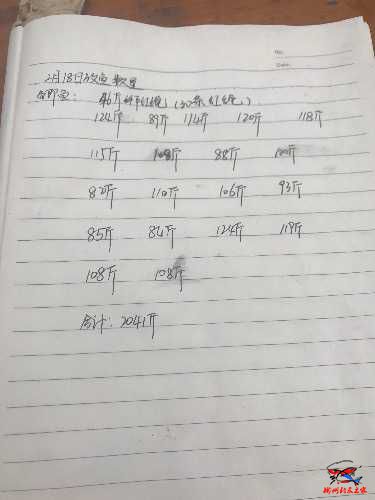 2月18日放鱼数量
46斤 (30条红鲤)
124斤 89斤 114斤 120斤 118斤
115斤 108斤 88斤
82斤 110斤 106斤 93斤
85斤 84斤 124斤 119斤
108斤 108斤
合计：2041斤